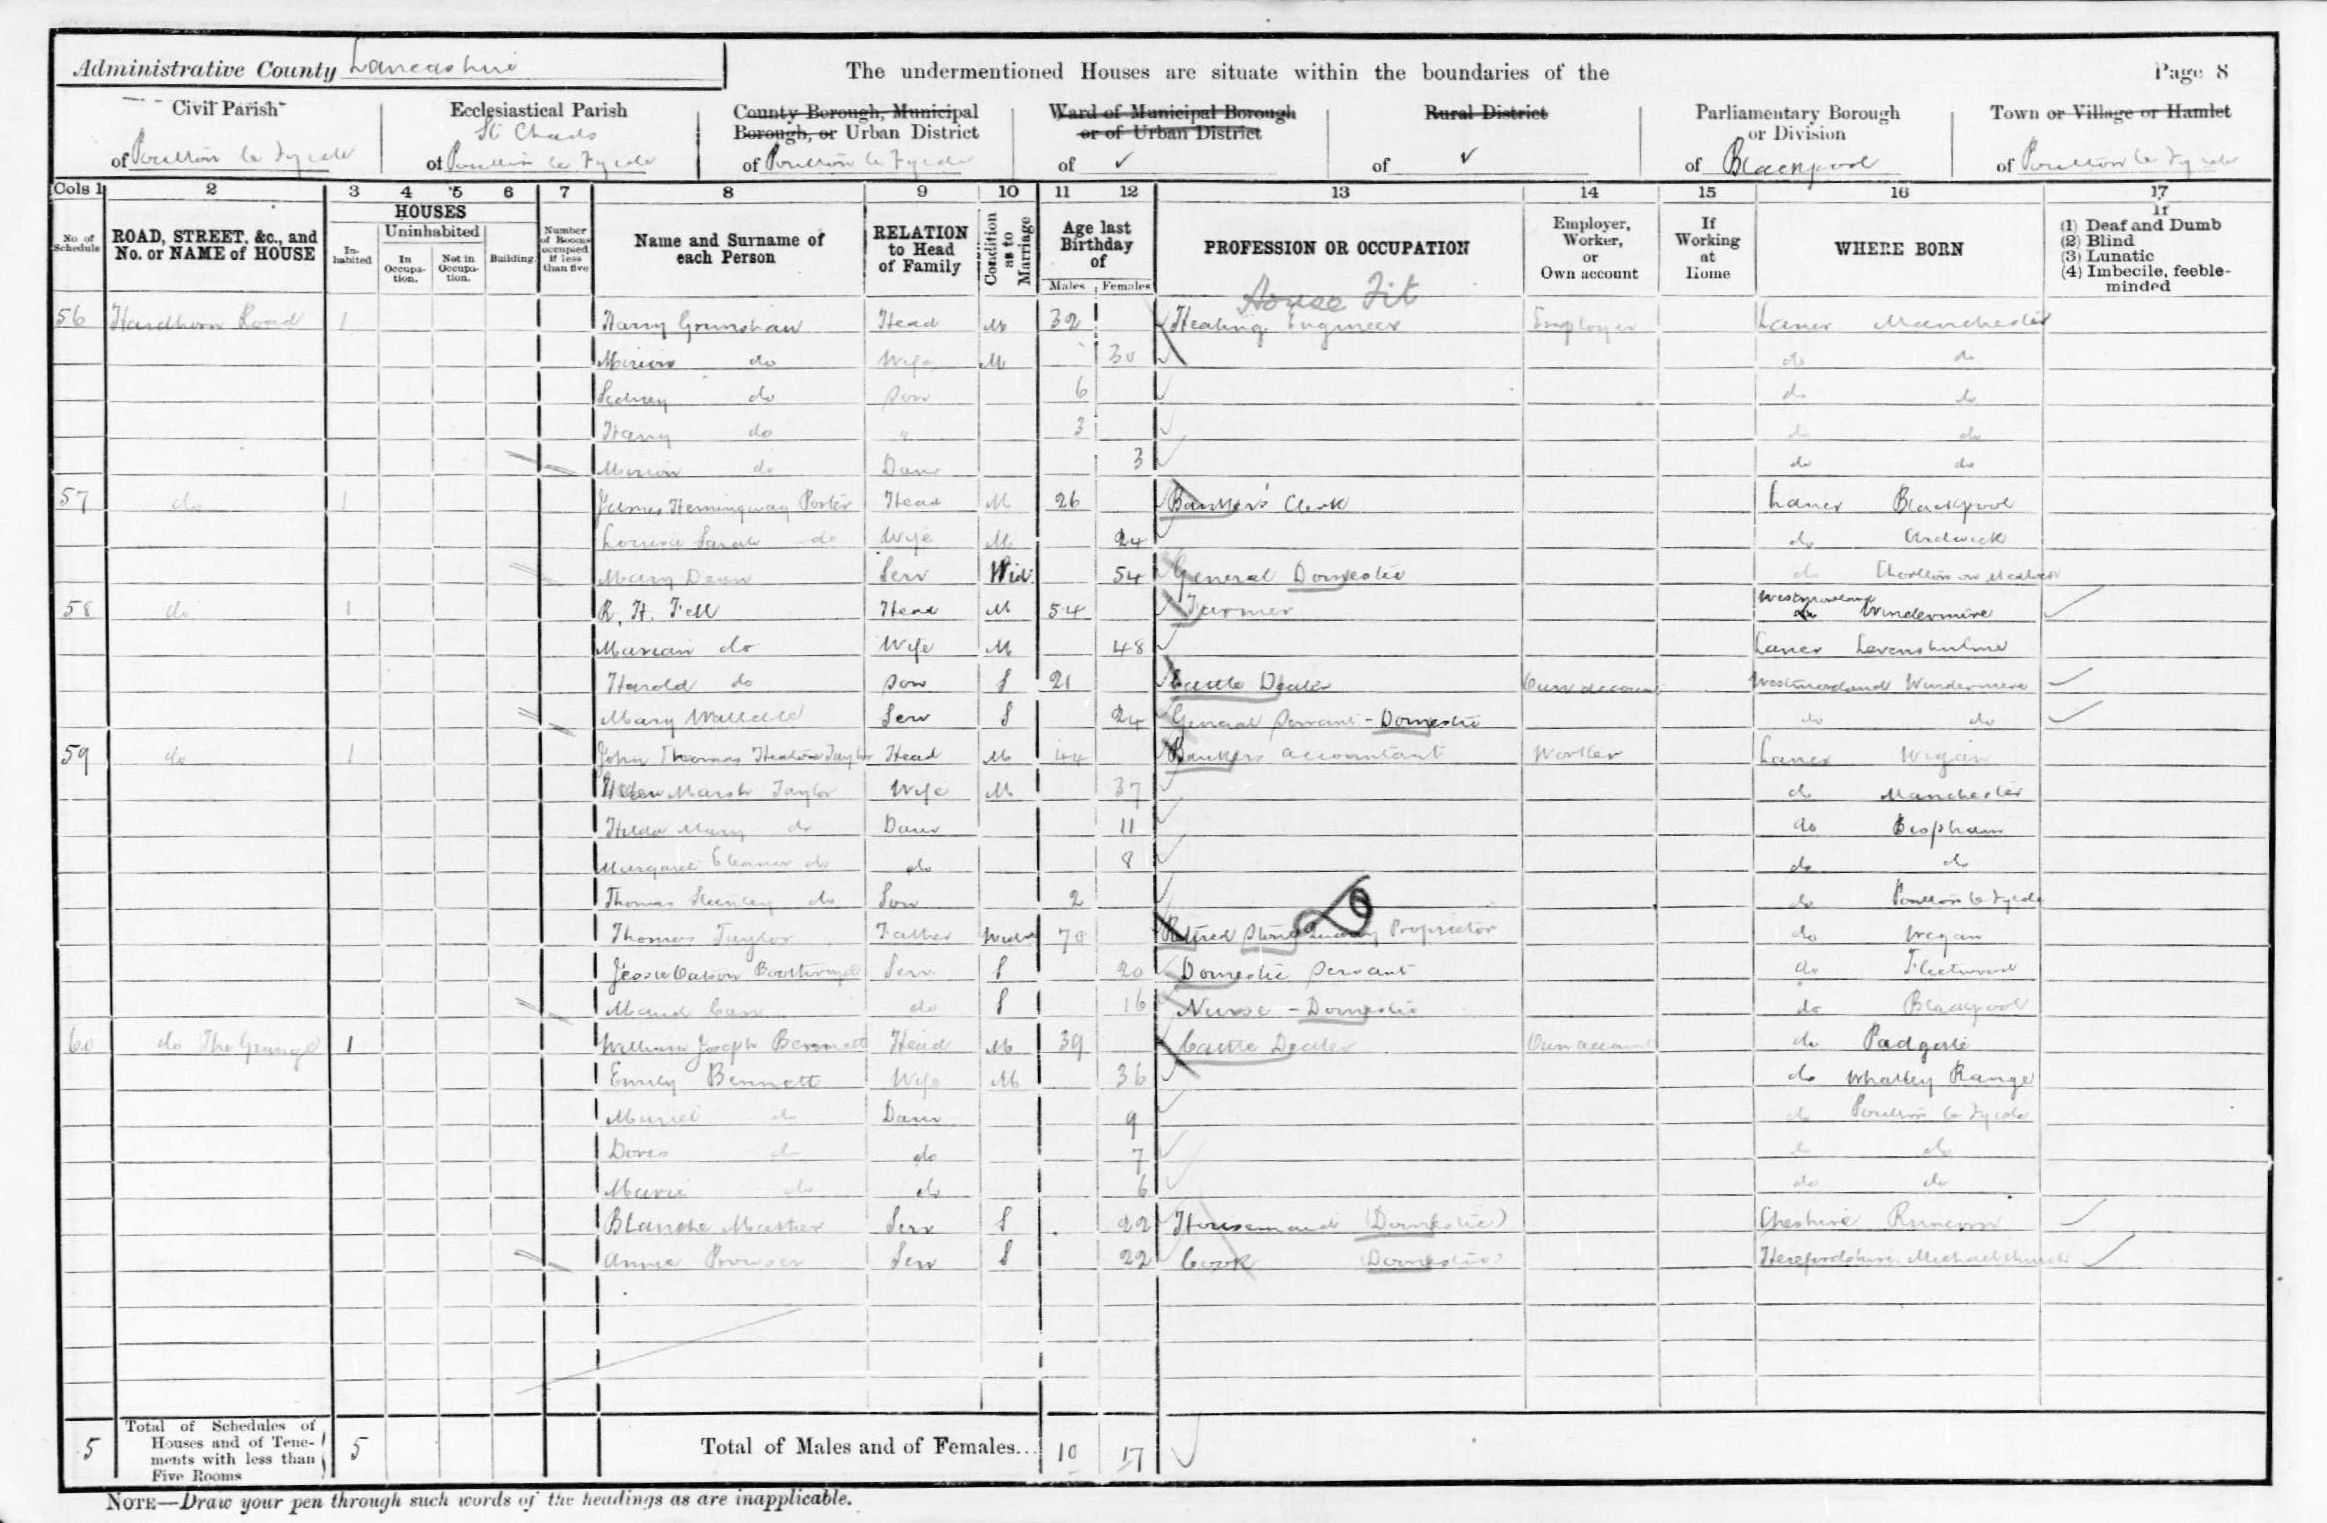 Administrative County Lancashire
The undermentioned Houses are situate within the boundaries of the
Page 8
Civil Parish
of Poulton le Fylde
Ecclesiastical Parish
St Chads
of Poulton le Fylde
County Borough, Municipal
Borough, or Urban District
of Poulton le Fylde
Ward of Municipal Borough
or of Urban District
of ✓
Rural District
of ✓
Parliamentary Borough
or Division
of Blackpool
Town or Village or Hamlet
of Poulton le Fylde
Cols 1 2 3 4 5 6 7 8 9 10 11 12 13 14 15 16 17
No of Schedule
ROAD, STREET, &c., and No. or NAME of HOUSE
HOUSES
In-habited
Uninhabited
In Occupa-tion.
Not in Occupa-tion.
Building
Number of Rooms occupied if less than five
Name and Surname of each Person
RELATION to Head of Family
Condition as to Marriage
Age last Birthday of
Males Females
PROFESSION OR OCCUPATION
Employer, Worker, or Own account
If Working at Home
WHERE BORN
If
(1) Deaf and Dumb
(2) Blind
(3) Lunatic
(4) Imbecile, feeble-minded
House Fit
56 Hardhorn Road 1 Harry Grimshaw Head M 32 Heating Engineer Employer Lancr Manchester
do Wife M 30 do do
Sidney do Son 6 do do
Harry do " 3 do do
Marion do Daur 3 do do
57 do 1 James Hemingway Porter Head M 26 Bankers' Clerk Lancr Blackpool
Louisa Sarah do Wife M 24 do Ardwick
Mary Dean Serv Wid: 54 General Domestic do Chorlton on Medlock
58 do 1 R. H. Fell Head M 54 Farmer Westmorland Windermere
Marian do Wife M 48 Lancr Levenshulme
Harold do Son S 21 Cattle Dealer Own account Westmorland Windermere
Mary Serv S 24 General Servant - Domestic do do
59 do 1 John Thomas Taylor Head M 44 Bankers accountant Worker Lancr Wigan
Helen Marsh Taylor Wife M 37 do Manchester
Hilda Mary do Daur 11 do Bispham
Margaret Eleanor do do 8 do do
Thomas Stanley do Son 2 do Poulton le Fylde
Thomas Taylor Father Widr 70 Retired Stone Quarry Proprietor do Wigan
Jessie Serv S 20 Domestic Servant do Fleetwood
Maud do S 16 Nurse - Domestic do Blackpool
60 do The Grange 1 William Joseph Bennett Head M 39 Cattle Dealer Own account do Padgate
Emily Bennett Wife M 36 do Whalley Range
Muriel do Daur 9 do Poulton le Fylde
Doris do do 7 do do
Marie do do 6 do do
Blanche Mather Serv S 22 Housemaid (Domestic) Cheshire Runcorn
Annie Serv S 22 Cook (Domestic) Herefordshire Michaelchurch
5 Total of Schedules of Houses and of Tene-ments with less than Five Rooms 5 Total of Males and of Females... 10 17
NOTE—Draw your pen through such words of the headings as are inapplicable.